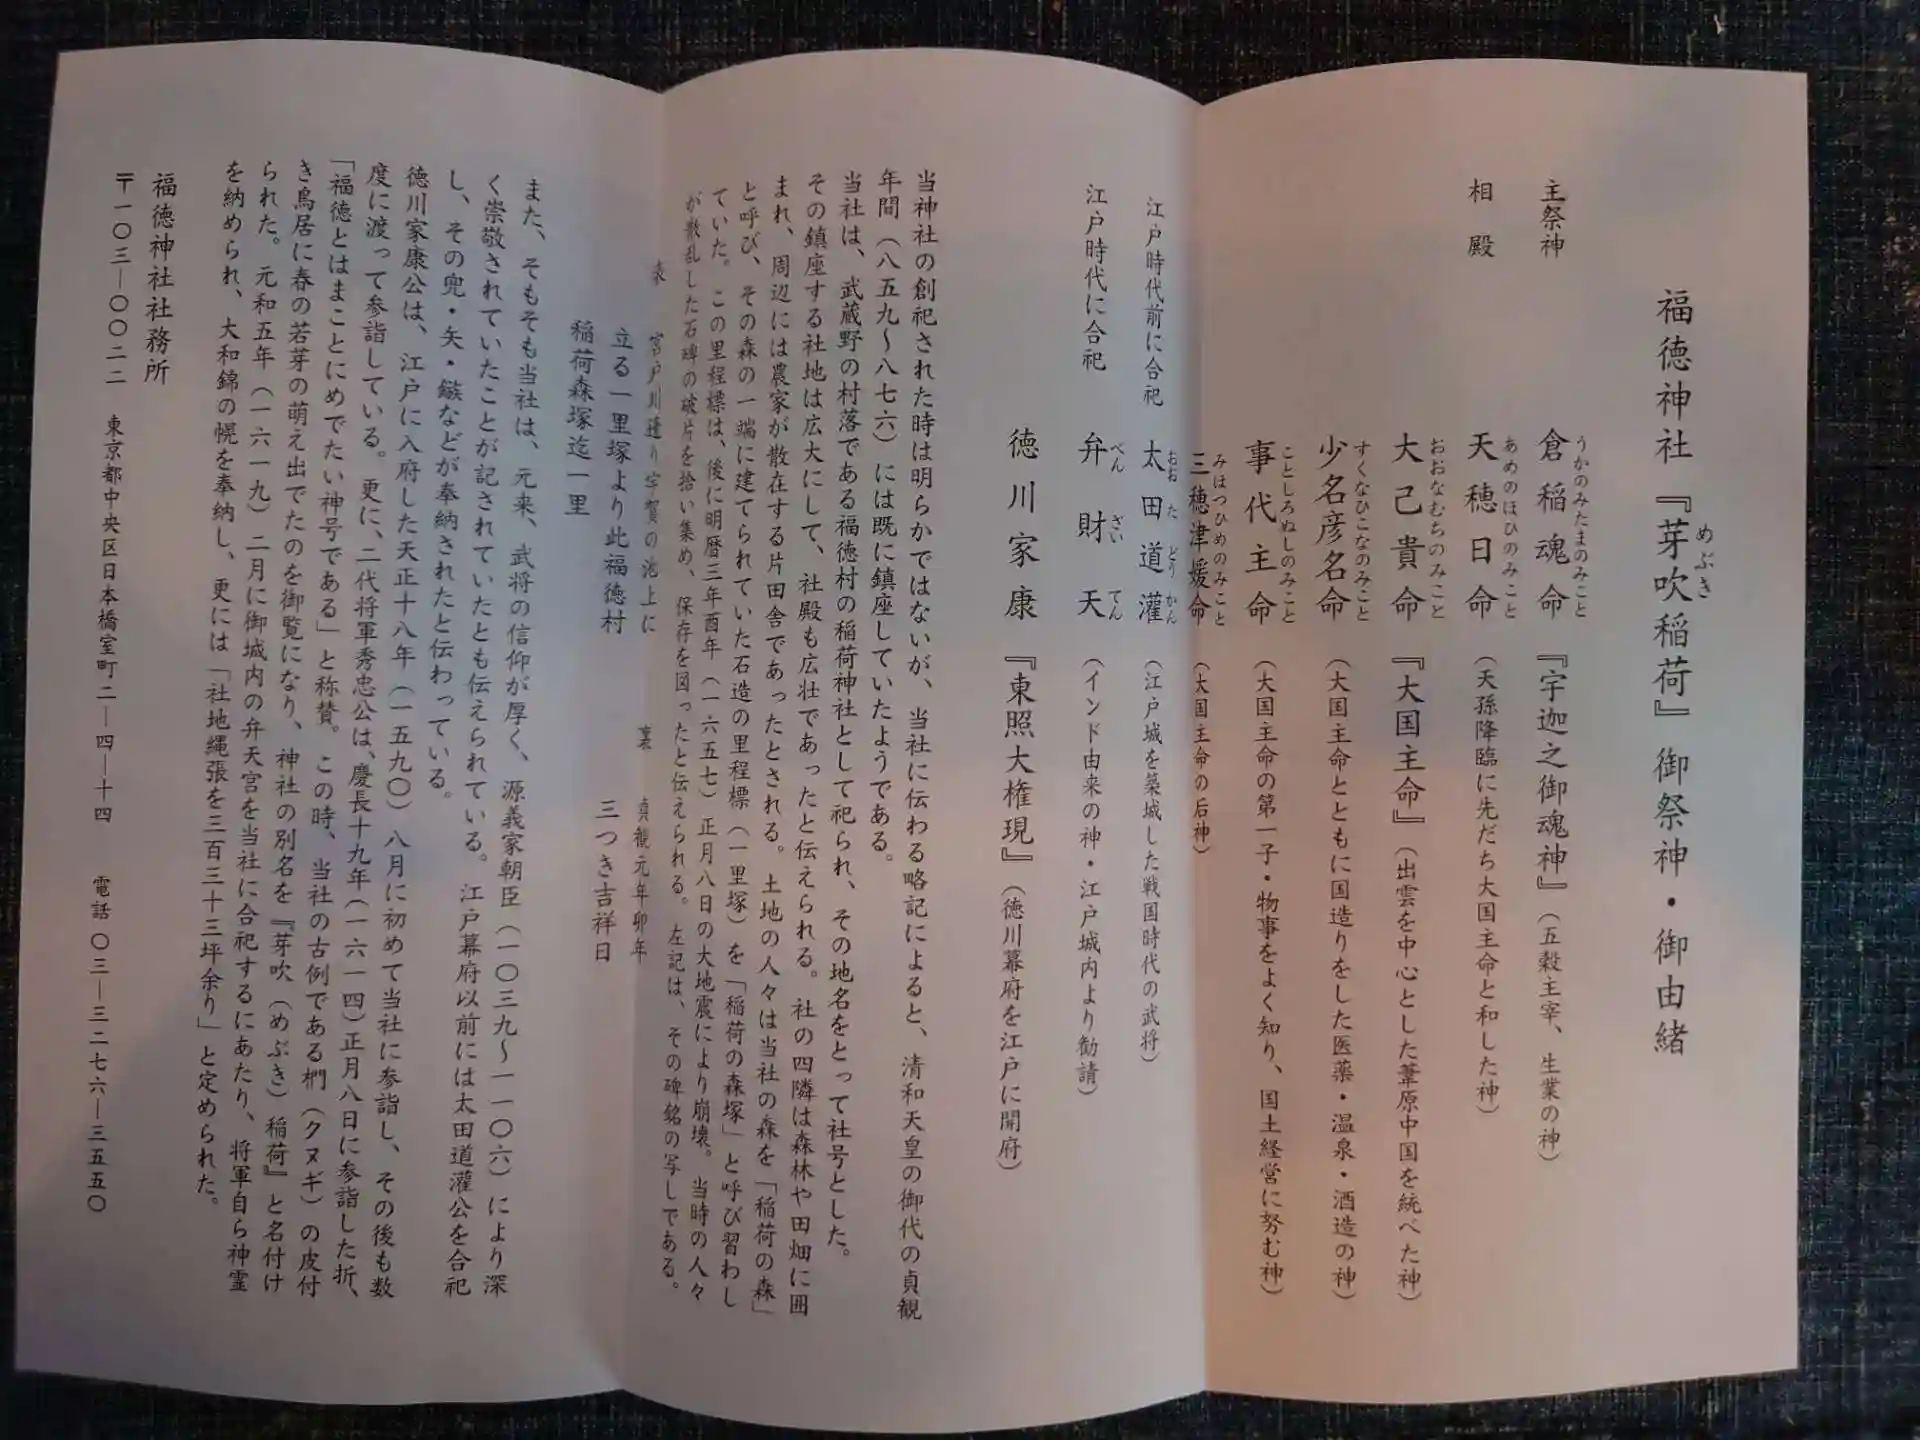 福徳神社『芽吹稲荷』御祭神・御由緒
めぶき
主祭神 倉稲魂命 『宇迦之御魂神』(五穀主宰、生業の神)
うかのみたまのみこと
相殿 天穂日命 (天孫降臨に先だち大国主命と和した神)
あめのほひのみこと
大己貴命 『大国主命』(出雲を中心とした葦原中国を統べた神)
おおなむちのみこと
少名彦名命 (大国主命とともに国造りをした医薬・温泉・酒造の神)
すくなひこなのみこと
事代主命 (大国主命の第一子・物事をよく知り、国土経営に努む神)
ことしろぬしのみこと
三穂津媛命 (大国主命の后神)
みほつひめのみこと
江戸時代前に合祀 太田道灌 (江戸城を築城した戦国時代の武将)
おおたどうかん
江戸時代に合祀 弁財天 (インド由来の神・江戸城内より勧請)
べんざいてん
徳川家康 『東照大権現』(徳川幕府を江戸に開府)
当神社の創祀された時は明らかではないが、当社に伝わる略記によると、清和天皇の御代の貞観
年間(八五九〜八七六)には既に鎮座していたようである。
当社は、武蔵野の村落である福徳村の稲荷神社として祀られ、その地名をとって社号とした。
その鎮座する社地は広大にして、社殿も広壮であったと伝えられる。社の四隣は森林や田畑に囲
まれ、周辺には農家が散在する片田舎であったとされる。土地の人々は当社の森を「稲荷の森」
と呼び、その森の一端に建てられていた石造の里程標(一里塚)を「稲荷の森塚」と呼び習わし
ていた。この里程標は、後に明暦三年酉年(一六五七)正月八日の大地震により崩壊。当時の人々
が散乱した石碑の破片を拾い集め、保存を図ったと伝えられる。左記は、その碑銘の写しである。
表 宮戸川邊り宇賀の池上に 裏 貞観元年卯年
立る一里塚より此福徳村 三つき吉祥日
稲荷森塚迄一里
また、そもそも当社は、元来、武将の信仰が厚く、源義家朝臣(一〇三九〜一一〇六)により深
く崇敬されていたことが記されていたとも伝えられている。江戸幕府以前には太田道灌公を合祀
し、その兜・矢・鏃などが奉納されたと伝わっている。
徳川家康公は、江戸に入府した天正十八年(一五九〇)八月に初めて当社に参詣し、その後も数
度に渡って参詣している。更に、二代将軍秀忠公は、慶長十九年(一六一四)正月八日に参詣した折、
「福徳とはまことにめでたい神号である」と称賛。この時、当社の古例である椚(クヌギ)の皮付
き鳥居に春の若芽の萌え出でたのを御覧になり、神社の別名を『芽吹(めぶき)稲荷』と名付け
られた。元和五年(一六一九)二月に御城内の弁天宮を当社に合祀するにあたり、将軍自ら神霊
を納められ、大和錦の幌を奉納し、更には「社地縄張を三百三十三坪余り」と定められた。
福徳神社社務所
〒一〇三―〇〇二二 東京都中央区日本橋室町二―四―十四 電話〇三―三二七六―三五五〇